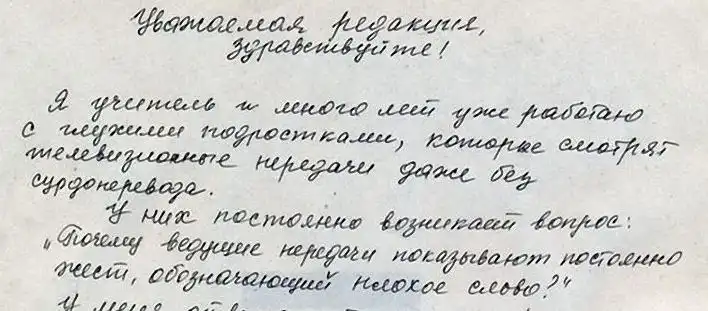 Уважаемая редакция,
здравствуйте!
Я учитель и много лет уже работаю
с глухими подростками, которые смотрят
телевизионные передачи даже без
сурдоперевода.
У них постоянно возникает вопрос:
„Почему ведущие передачи показывают постоянно
жест, обозначающий плохое слово?"
У меня